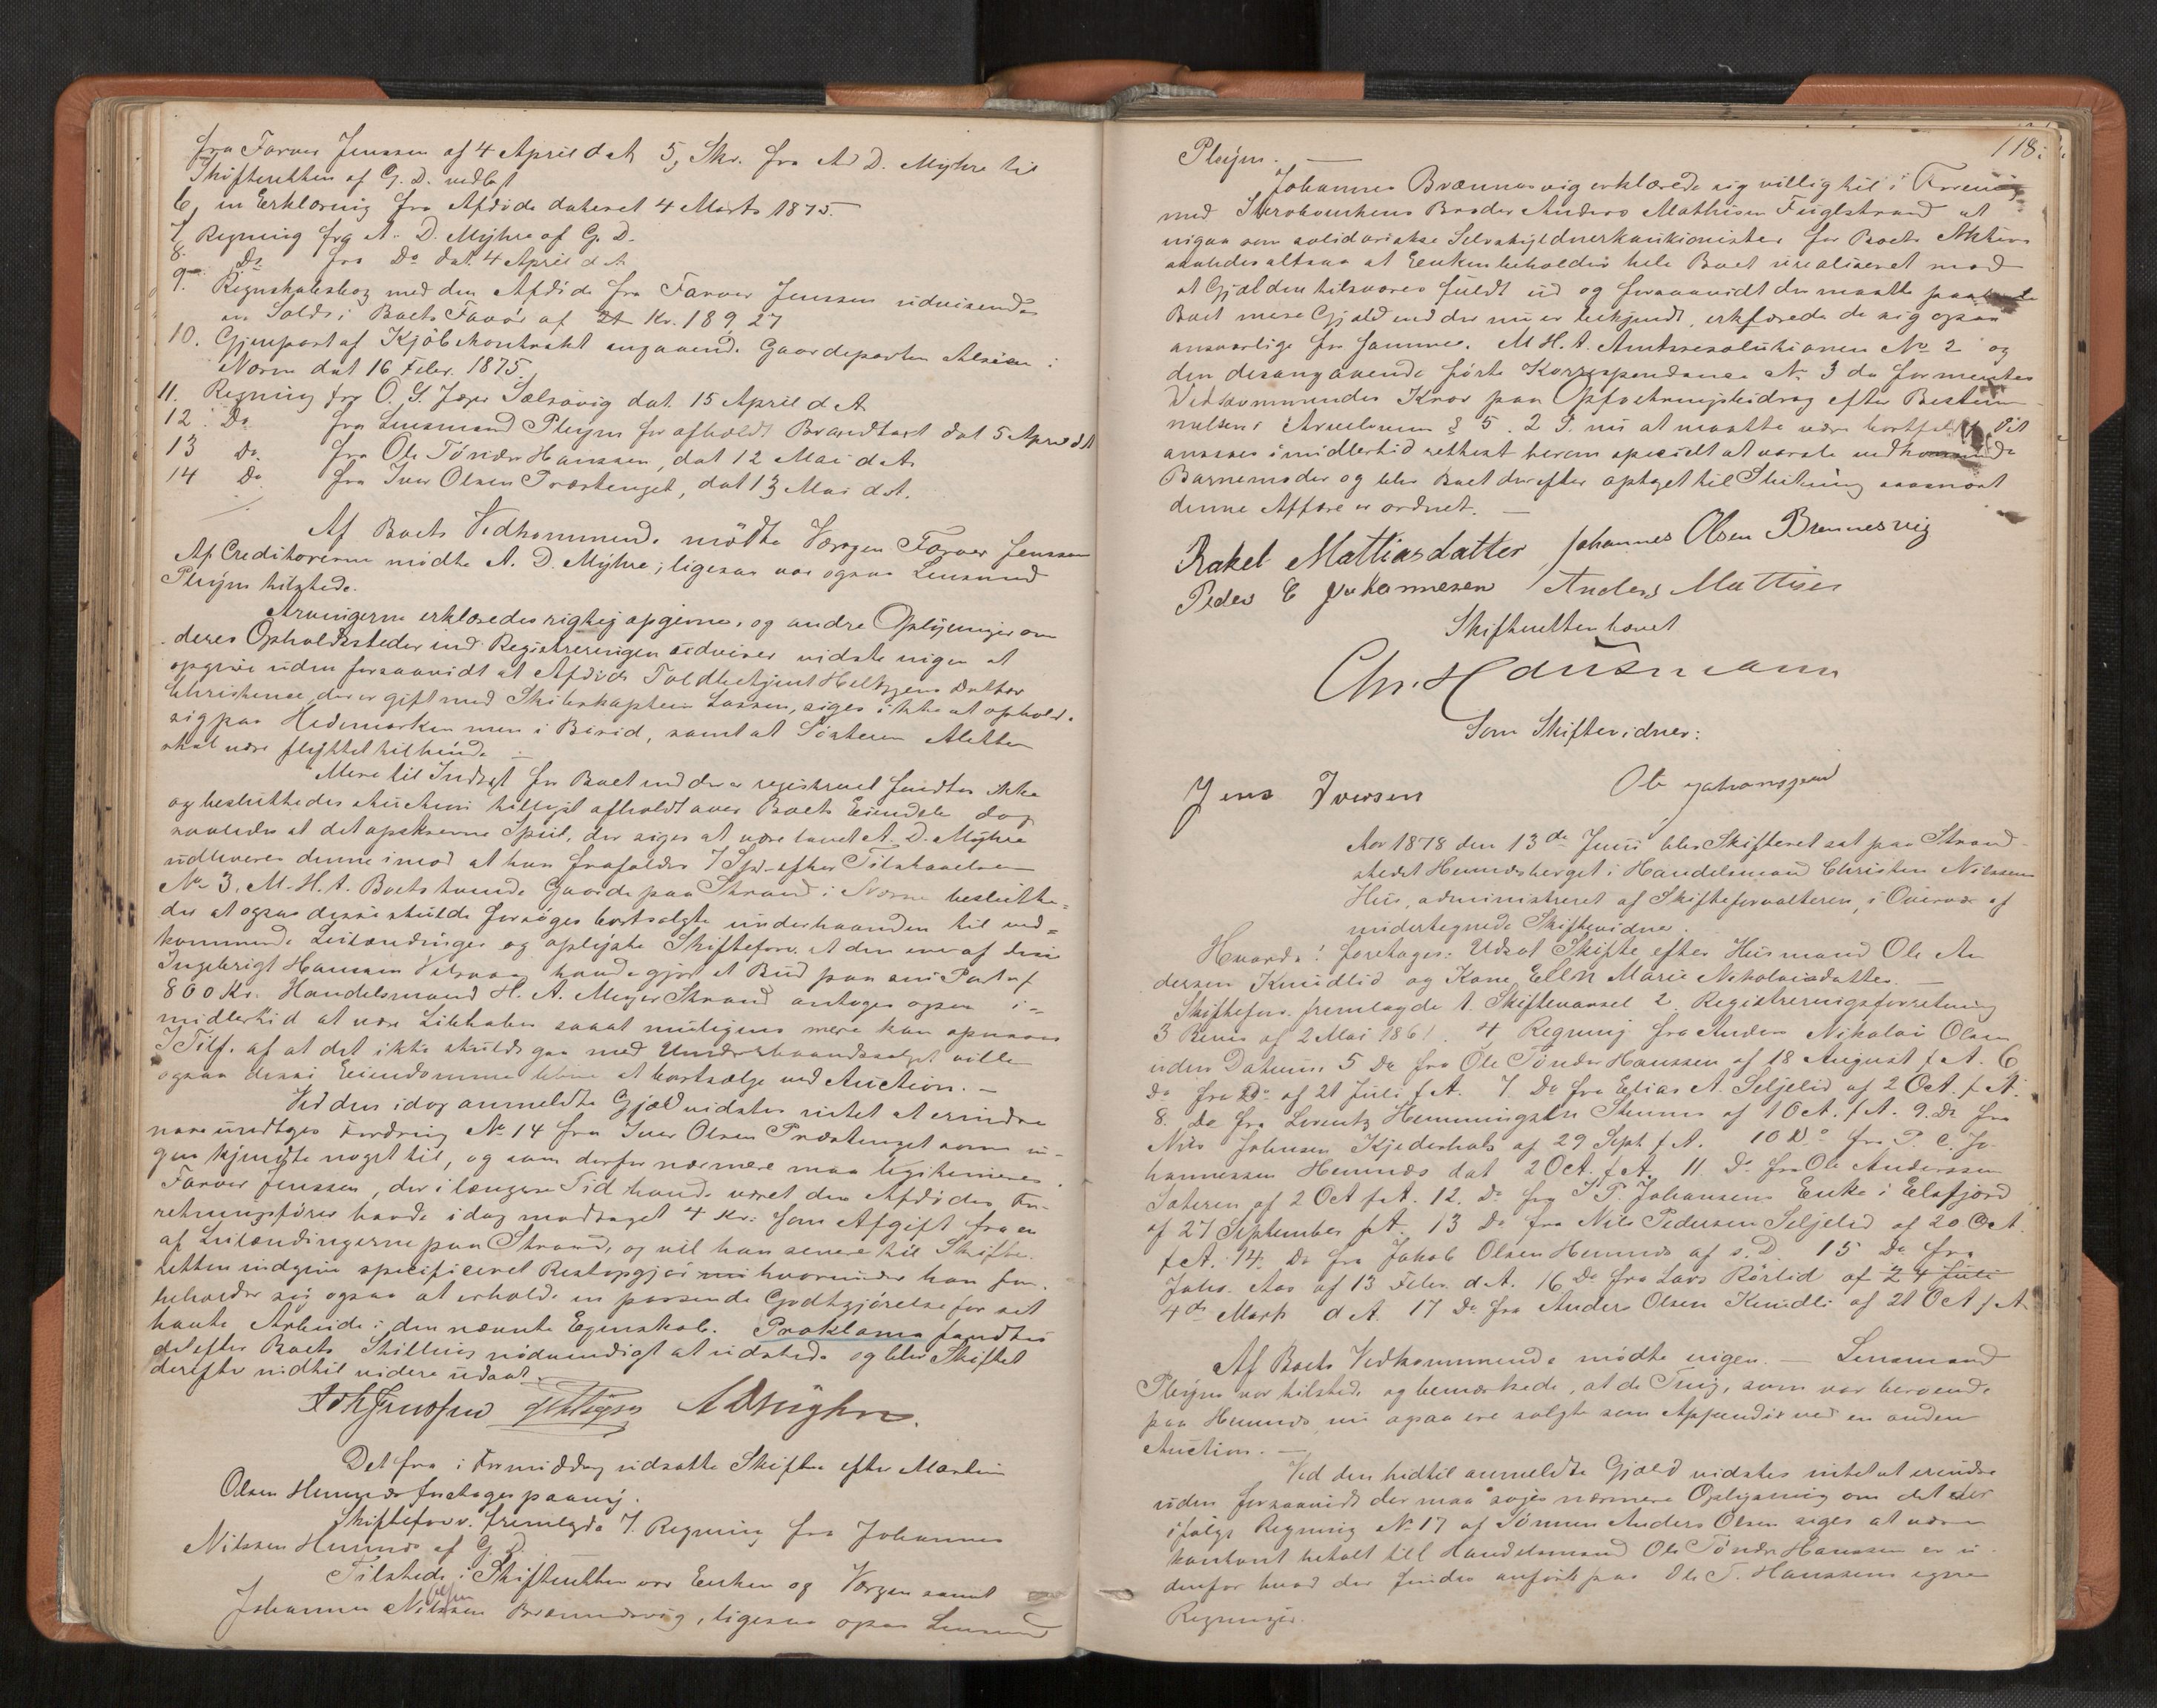 fra Farver Jenssen af 4 April d A 5, Skr. fra A D. Myhre til
Skifteretten af G. D. vedlagt
6, en Erklæring fra Afdöde dateret 4 Marts 1875.
7 Regning fra A. D. Myhre af G. D.
8. Do fra Do dat. 4 April d A
9. Regnskabsbog med den Afdöde fra Farver Jenssen udvisende
en Saldo i Boets Favör af Kr. 189,27
10. Gjenpart af Kjöbekontrakt angaaende Gaardeparten
Næsna dat 16 Febr. 1875.
11. Regning fra O. S. Selsövig dat. 15 April d A
12. Do fra Lensmand Pleym for afholdt dat 5 April d A
13 Do. fra Ole Tönder Hanssen, dat 12 Mai d A.
14 Do fra Iver Olsen Præstenget, dat 13 Mai d A.
Af Boets Vedkommende mödte Værgen Farver Jenssen
Af Creditorerne mödte A. D. Myhre; ligesaa var ogsaa Lensmand
Pleym tilstede.
Arvingerne erklæredes rigtig opgivne, og andre Oplysninger om
deres Opholdssteder end Registreringen udviser vidste ingen at
opgive uden forsaavidt at Afdöde Toldbetjent Heltzens Datter
Christence, der er gift med Skibskaptein Lassen, siges ikke at opholde
sig paa Hedemarken men i Birid, samt at Söstern Alette
skal være flyttet til hende
Mere til Indtægt for Boet end der er registreret fandtes ikke
og besluttedes Auction tillyst afholdt over Boets Eiendele dog
saaledes at det opskrevne Speil, der siges at være lovet A. D. Myhre
udleveres denne imod at han frafalder 7 Spd. efter Tilstaaelsen
No 3, M. H. t. Boets tvende Gaarde paa Strand i Næsna beslutte=
des at ogsaa disse skulde forsöges bortsolgte underhaanden til ved=
kommende Leilændinger og oplyste Skifteforv. at den ene af disse
Ingebrigt Hansen havde gjort et Bud paa sin Part af
800 Kr. Handelsmand H. A. Meyer Strand antages ogsaa i=
midlertid at være Liebhaber saaat muligens mere kan opnaaes
I Tilf. af at det ikke skulde gaa med Underhaandssalget ville
ogsaa disse Eiendomme blive at bortsælge ved Auction. —
Ved den idag anmeldte Gjæld vidstes intet at erindre
naar undtages Fordring No 14 fra Iver Olsen Præstenget som in=
gen kjendte noget til, og som derfor nærmere maa legitimeres.
Farver Jenssen, der i længere Tid havde været den Afdödes For-
retningsförer havde idag modtaget 4 Kr. som Afgift fra en
af Leilændingerne paa Strand, og vil han senere til Skifte-
retten indgive specificeret Restopgjör hvorunder han for-
beholder sig ogsaa at erholde en passende Godtgjörelse for sit
havte Arbeide i den nævnte Egenskab. Proklama fandtes
det efter Boets Stilling nödvendigt at udstede og blev Skiftet
derefter indtil videre udsat.
A D Myhre.
Det fra i Formiddag udsatte Skifte efter Martin
Olsen Hemnæs foretages paany.
Skifteforv. fremlagde 7. Regning fra Johannes
Nilssen Hemnæs af G. D.
Tilstede i Skifteretten var Enken og Værgen samt
Johannes Olsen Brænnesvig, ligesaa ogsaa Lensmand
118.
Pleym. —
Johannes Brænnesvig erklærede sig villig til i Forening
med Stervboenkens Broder Anders Mathisen Fuglstrand at
indgaa som solidariske Selvskyldnerkautionister for Boets Aktiva
saaledes altsaa at Enken beholder hele Boet urealiseret mod
at Gjælden tilsvares fuldt ud og forsaavidt der maatte paahvile
Boet mere Gjæld end der nu er bekjendt, erklærede de sig ogsaa
ansvarlige for samme. M. H. t. Amtsresolutionen No 2 og
den desangaaende förte Korrespondance No 3 da formentes
Vedkommendes Krav paa Opfostringsbidrag efter Bestem-
melsen i Arveloven § 5. 2 P. nu at maatte være bortfaldt Det
ansees imidlertid rettest herom specielt at varsle vedkommende
Barnemoder og blev Boet derefter optaget til Slutning saasnart
denne Affære er ordnet. —
Rakel Mattiasdatter Johannes Olsen Brennesvig
Peder E Johannesen Anders Mattisen
Skifteretten hævet
Chr. Hausmann
Som Skiftevidner:
Jens Iversen Ole
Aar 1878 den 13de Juni blev Skifteret sat paa Strand-
stedet Hemnæsberget i Handelsmand Christen Nilssens
Hus, administreret af Skifteforvalteren, i Overvær af
undertegnede Skiftevidner.
Hvorda: foretages: Udsat Skifte efter Husmand Ole An
dersen Knudlid og Kone Ellen Marie Nikolaisdatter. —
Skifteforv. fremlagde 1. Skiftevarsel 2, Registreringsforretning
3 Bevis af 2 Mai 1861. 4 Regning fra Anders Nikolai Olsen
uden Datum, 5 Do fra Ole Tönder Hanssen af 18 August f A. 6
Do fra Do af 21 Juli f A. 7. Do fra Elias A. Seljelid af 2 Oct. f A.
8. Do fra Lorentz Hemmingsen Stennes af 1 Oct. f A. 9. Do fra
Nils Johnsen Kjederhals af 29 Sept f A. 10 Do fra P. C. Jo-
hannessen Hemnæs dat 2 Oct. f A. 11. Do fra Ole Anderssen
Sæteren af 2 Oct f A. 12. Do fra P. Johansens Enke i Elsfjord
af 27 September f A. 13 Do fra Nils Pedersen Seljelid af 20 Oct.
f A. 14. Do fra Jakob Olsen Hemnæs af s. D. 15 Do fra
Johs. Aas af 13 Febr. d A. 16 Do fra Lars Rörlid af 24 Juli
4de Marts d A. 17 Do fra Anders Olsen Knudli af 21 Oct f A
Af Boets Vedkommende mödte ingen. — Lensmand
Pleym var tilstede og bemærkede, at de Ting, som var beroende
paa Hemnæs nu ogsaa ere solgte som Appendix ved en anden
Auction. —
Ved den hidtil anmeldte Gjæld vidstes intet at erindre
uden forsaavidt der maa söges nærmere Oplysning om det der
ifölge Regning No 17 af Sönnen Anders Olsen siges at være
kontant betalt till Handelsmand Ole Tönder Hanssen er u-
denfor hvad der findes anfört paa Ole T. Hanssens egne
Regninger.